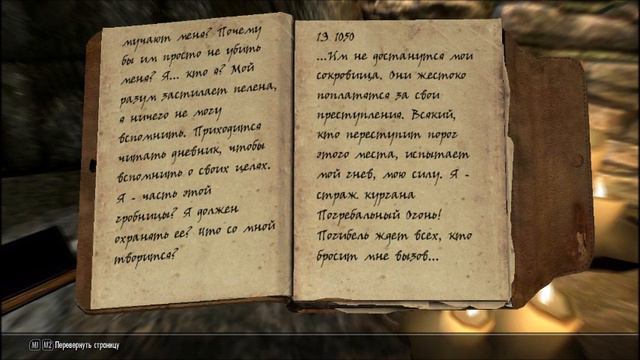 мучают меня? Почему
бы им просто не убить
меня? Я... кто я? Мой
разум застилает пелена,
я ничего не могу
вспомнить. Приходится
читать дневник, чтобы
вспомнить о своих целях.
Я - часть этой
гробницы? Я должен
охранять ее? Что со мной
творится?
1Э 1050
...Им не достанутся мои
сокровища. Они жестоко
поплатятся за свои
преступления. Всякий,
кто переступит порог
этого места, испытает
мой гнев, мою силу. Я -
страж кургана
Погребальный Огонь!
Погибель ждет всех, кто
бросит мне вызов...
M1 M2 Перевернуть страницу